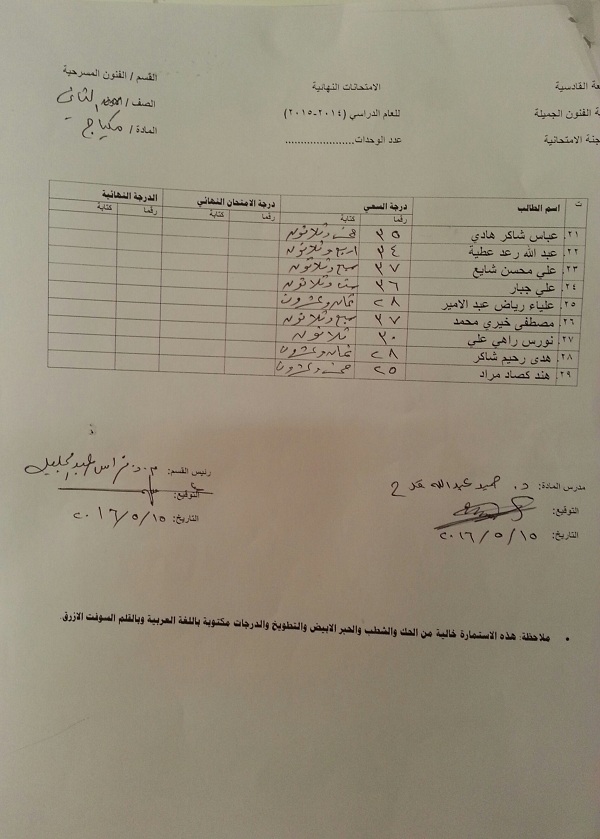 ة القادسية
ة الفنون الجميلة
جنة الامتحانية
الامتحانات النهائية
للعام الدراسي (٢٠١٤-٢٠١٥)
عدد الوحدات.....................
القسم / الفنون المسرحية
الصف / الثاني
المادة / مكياج
ت اسم الطالب درجة السعي درجة الامتحان النهائي الدرجة النهائية
رقما كتابة رقما كتابة رقما كتابة
٢١. عباس شاكر هادي ٣٥ خمس وثلاثون
٢٢. عبد الله رعد عطية ٣٤ اربع وثلاثون
٢٣. علي محسن شايع ٣٧ سبع وثلاثون
٢٤. علي جبار ٣٦ ست وثلاثون
٢٥. علياء رياض عبد الامير ٢٨ ثمان وعشرون
٢٦. مصطفى خيري محمد ٣٧ سبع وثلاثون
٢٧. نورس راهي علي ٣٠ ثلاثون
٢٨. هدى رحيم شاكر ٢٨ ثمان وعشرون
٢٩. هند كصاد مراد ٢٥ خمس وعشرون
مدرس المادة: د. حميد عبدالله
التوقيع:
التاريخ: ٢٠١٦/٥/١٥
رئيس القسم: م.د. فراس عبد الجليل
التوقيع:
التاريخ: ٢٠١٦/٥/١٥
• ملاحظة: هذه الاستمارة خالية من الحك والشطب والحبر الابيض والتطويخ والدرجات مكتوبة باللغة العربية وبالقلم السوفت الازرق.